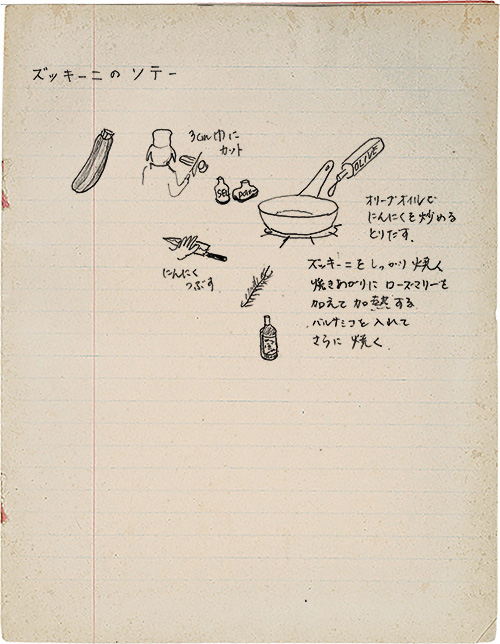 ズッキーニの ソテー
3cm巾に
カット
SEL
OLIVE
オリーブオイルで
にんにくを炒める
とりだす.
にんにく
つぶす
ズッキーニをしっかり焼く
焼きあがりに ローズマリーを
加えて加熱する
バルサミコを入れて
さらに 焼く.